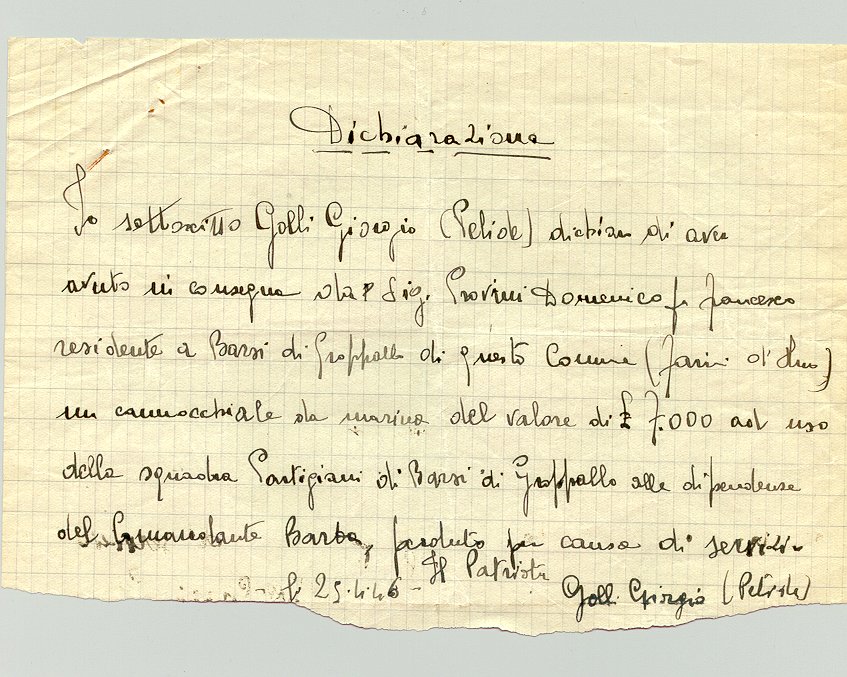 Dichiarazione
Io sottoscritto Golli Giorgio (Pelide) dichiaro di aver
avuto in consegna dal Sig. Provini Domenico fu Francesco
residente a Barsi di Groppallo di questo Comune (Farini d'Olmo)
un cannocchiale da marina del valore di £ 7.000 ad uso
della squadra Partigiani di Barsi di Groppallo alle dipendenze
del Comandante Barba, perduto per causa di servizio
Il Patriota
li 25.4.46 - Golli Giorgio (Pelide)